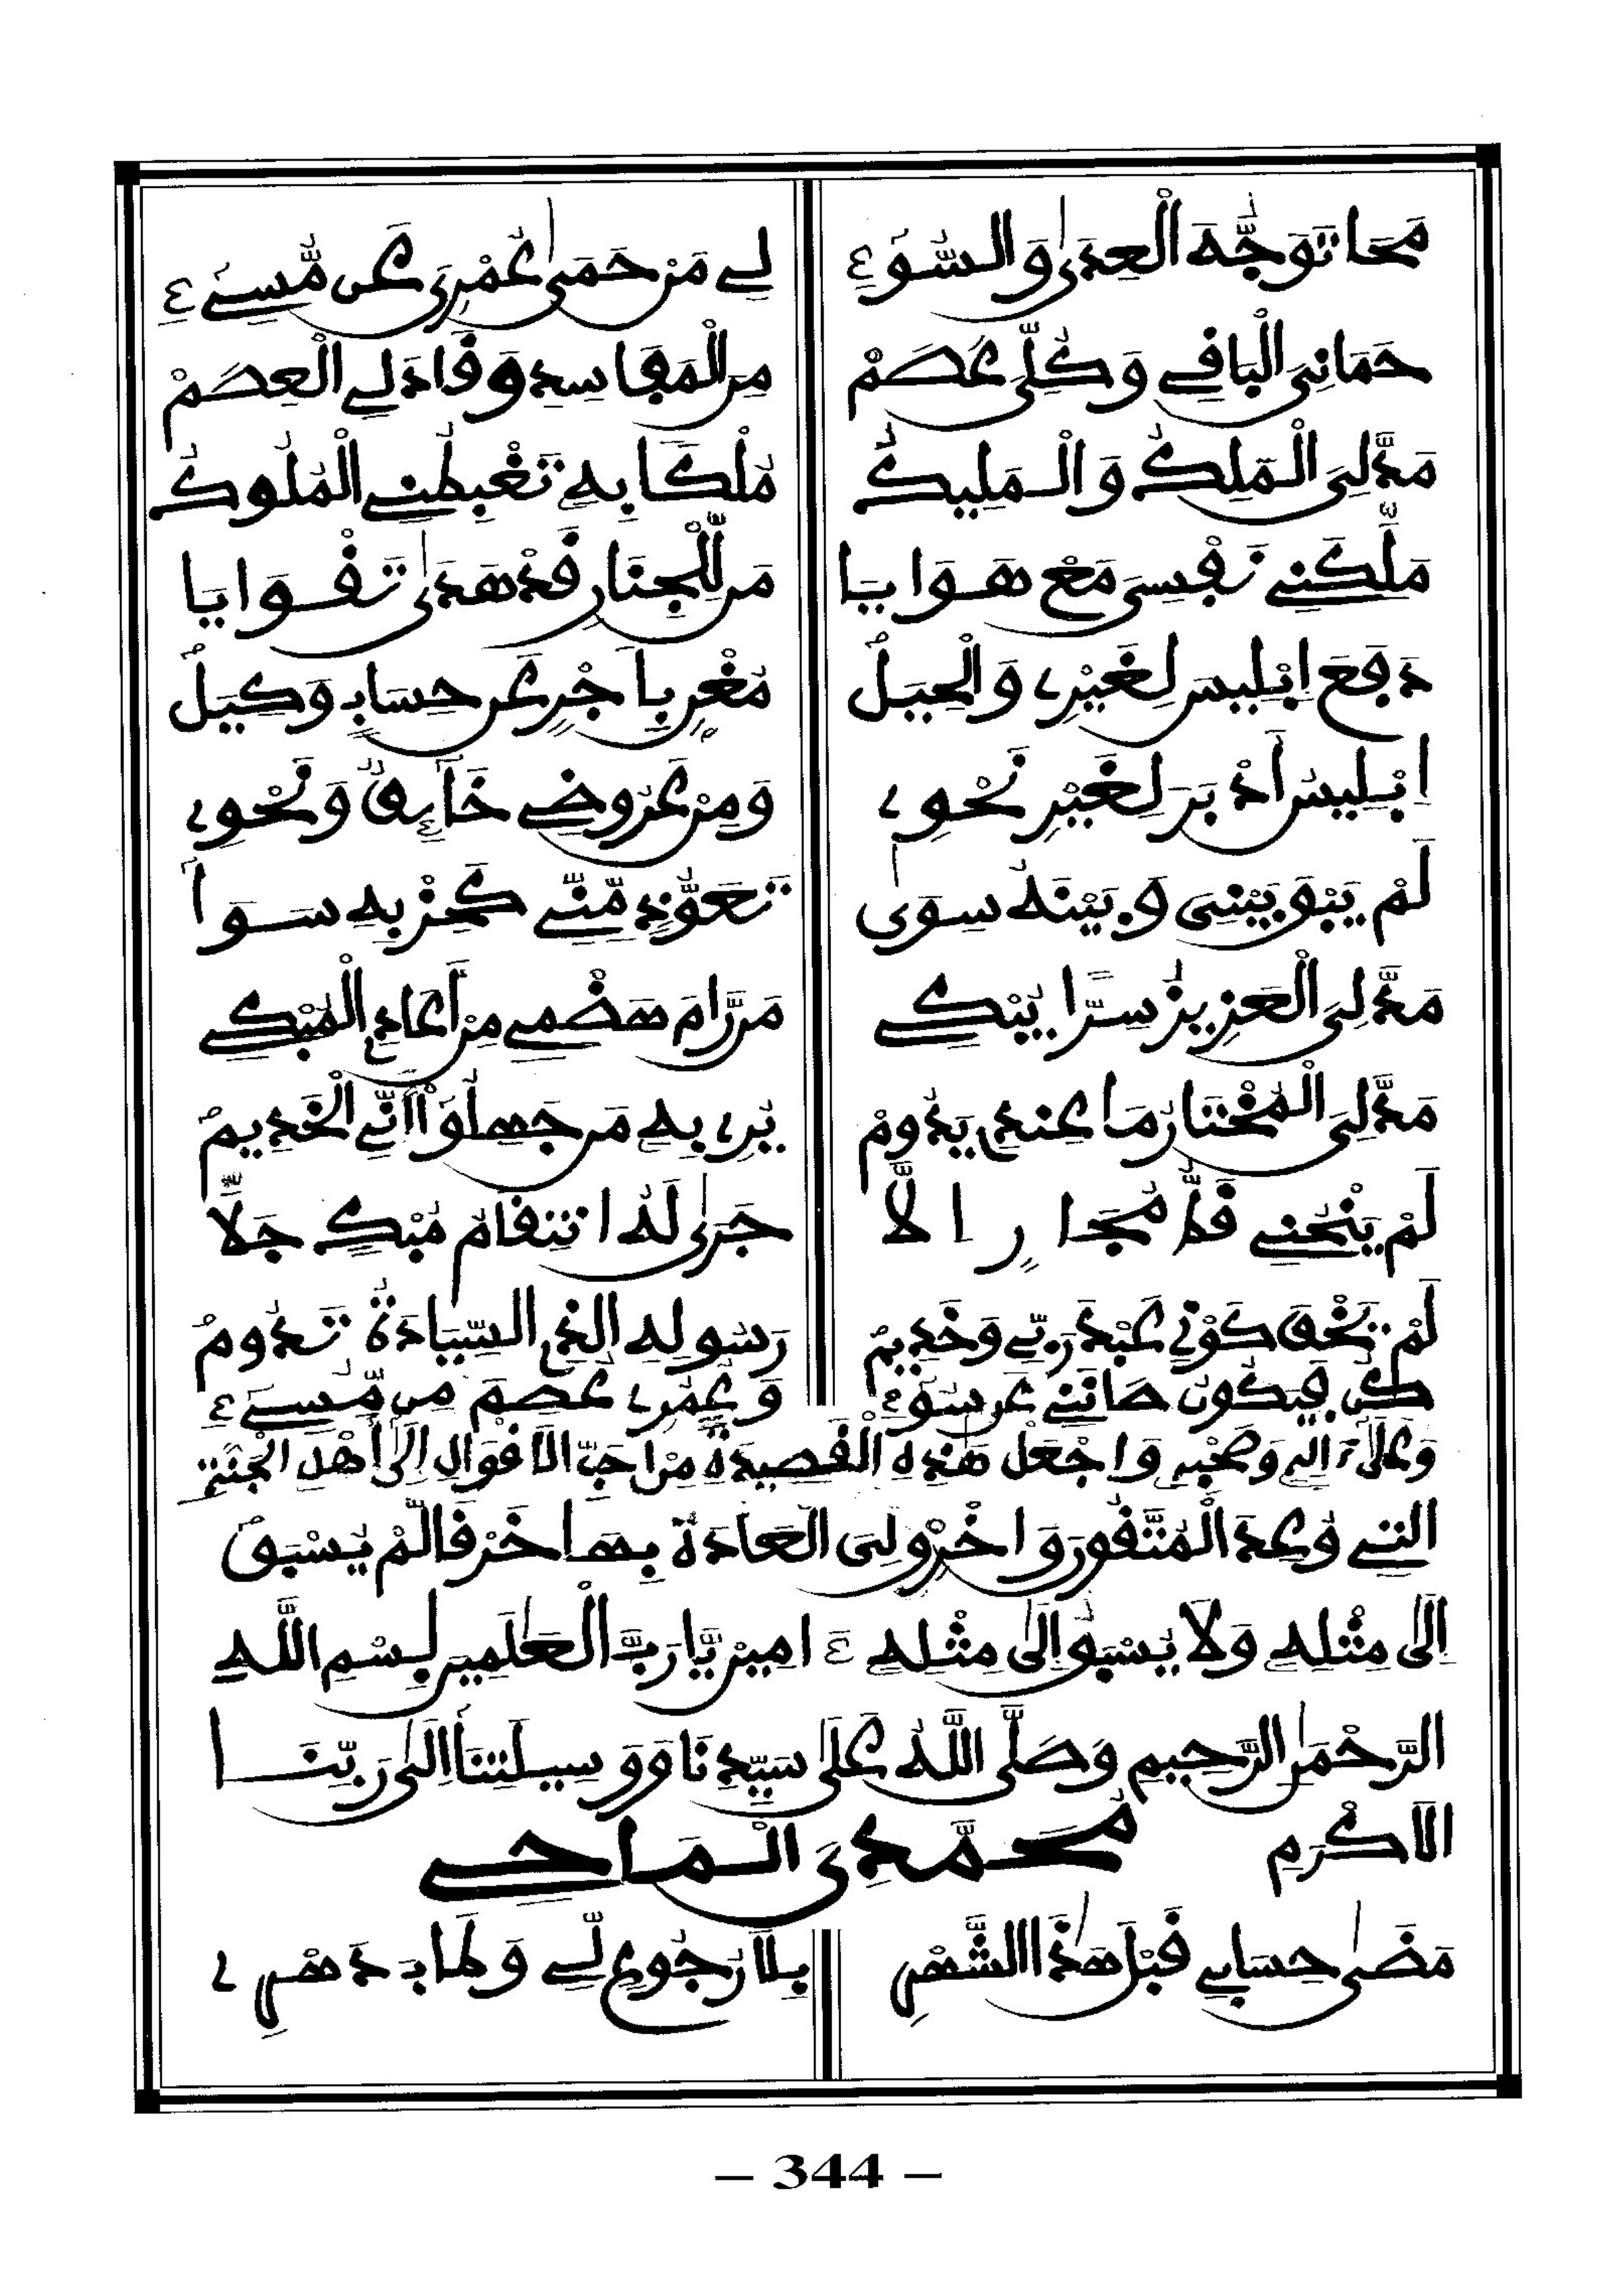 مَحَا تَوَجُّهَ الْعِدَىٰ وَالسُّوَءِ لِي مَنْ حَمَىٰ عُمْرِيَ عَن مُّسِيءِ
حَمَانِيَ الْبَاقِي وَكُلِّي عَصَمْ مِنَ الْمَفَاسِدِ وَقَادَ لِي الْعِصَمْ
مَدَّ لِيَ الْمَلِكُ وَالْمَلِيكُ مُلْكًا بِهِ تَغْبِطُنِي الْمُلُوكُ
مَلَّكَنِي نَفْسِيَ مَعْ هَوَايَا مَن لِّلْجِنَانِ قَدْ هَدَىٰ تَقْوَايَا
دَفَعَ إِبْلِيسَ لِغَيْرِي وَالْحِيَلْ مُغْرٍ بِأَجْرٍ عَن حِسَابٍ وَكِيَلْ
إِبْلِيسُ أَدْبَرَ لِغَيْرِ نَحْوِي وَمِنْ عَرُوضِي خَائِفٌ وَنَحْوِي
لَمْ يَبْقَ بَيْنِيَ وَبَيْنَهُ سِوَىٰ تَعَوُّذٍ مِّنِّي كَحِزْبِهِ سَوَا
مَدَّ لِيَ الْعَزِيزُ سِرًّا يُبْكِي مَن رَّامَ هَضْمِي مِنْ أَعَادٍ الْمُبْكِي
مَدَّ لِيَ الْمُخْتَارُ مَا عِندِي يَدُومْ يُرِي بِهِ مَن جَهِلُوا أَنِّي الْخَدِيمْ
لَمْ يَنْحُنِي قَطُّ مُجَارٍ إِلَّا جَرَىٰ لَهُ انتِقَامُ مُبْكٍ جَلَّا
لَمْ يَخْفَ كَوْنِي عَبْدَ رَبِّي وَخَدِيمْ رَسُولِهِ الَّذِي السِّيَادَةُ تَدُومْ
كُن فَيَكُونُ صَانَنِي عَن سُوءِ وَعُمُرِي عَصَمَ مِن مُّسِيءِ
وَعَلَىٰ ءَالِهِ وَصَحْبِهِ وَاجْعَلْ هَٰذِهِ الْقَصِيدَةَ مِنْ أَحَبِّ الْأَقْوَالِ إِلَىٰ أَهْلِ الْجَنَّةِ
الَّتِي وُعِدَ الْمُتَّقُونَ وَاخْرِقْ لِيَ الْعَادَةَ بِهَا خَرْقًا لَّمْ يُسْبَقْ
إِلَىٰ مِثْلِهِ وَلَا يُسْبَقُ إِلَىٰ مِثْلِهِ ءَامِينَ يَا رَبَّ الْعَٰلَمِينَ بِسْمِ اللَّهِ
الرَّحْمَٰنِ الرَّحِيمِ وَصَلَّى اللَّهُ عَلَىٰ سَيِّدِنَا وَوَسِيلَتِنَا إِلَىٰ رَبِّنَا
الْأَكْرَمِ مُحَمَّدِيَ الْمَاحِي
مَضَىٰ حِسَابِي قَبْلَ هَٰذَا الشَّهْرِ بِلَا رُجُوعٍ لِّي وَطَابَ دَهْرِي
– 344 –